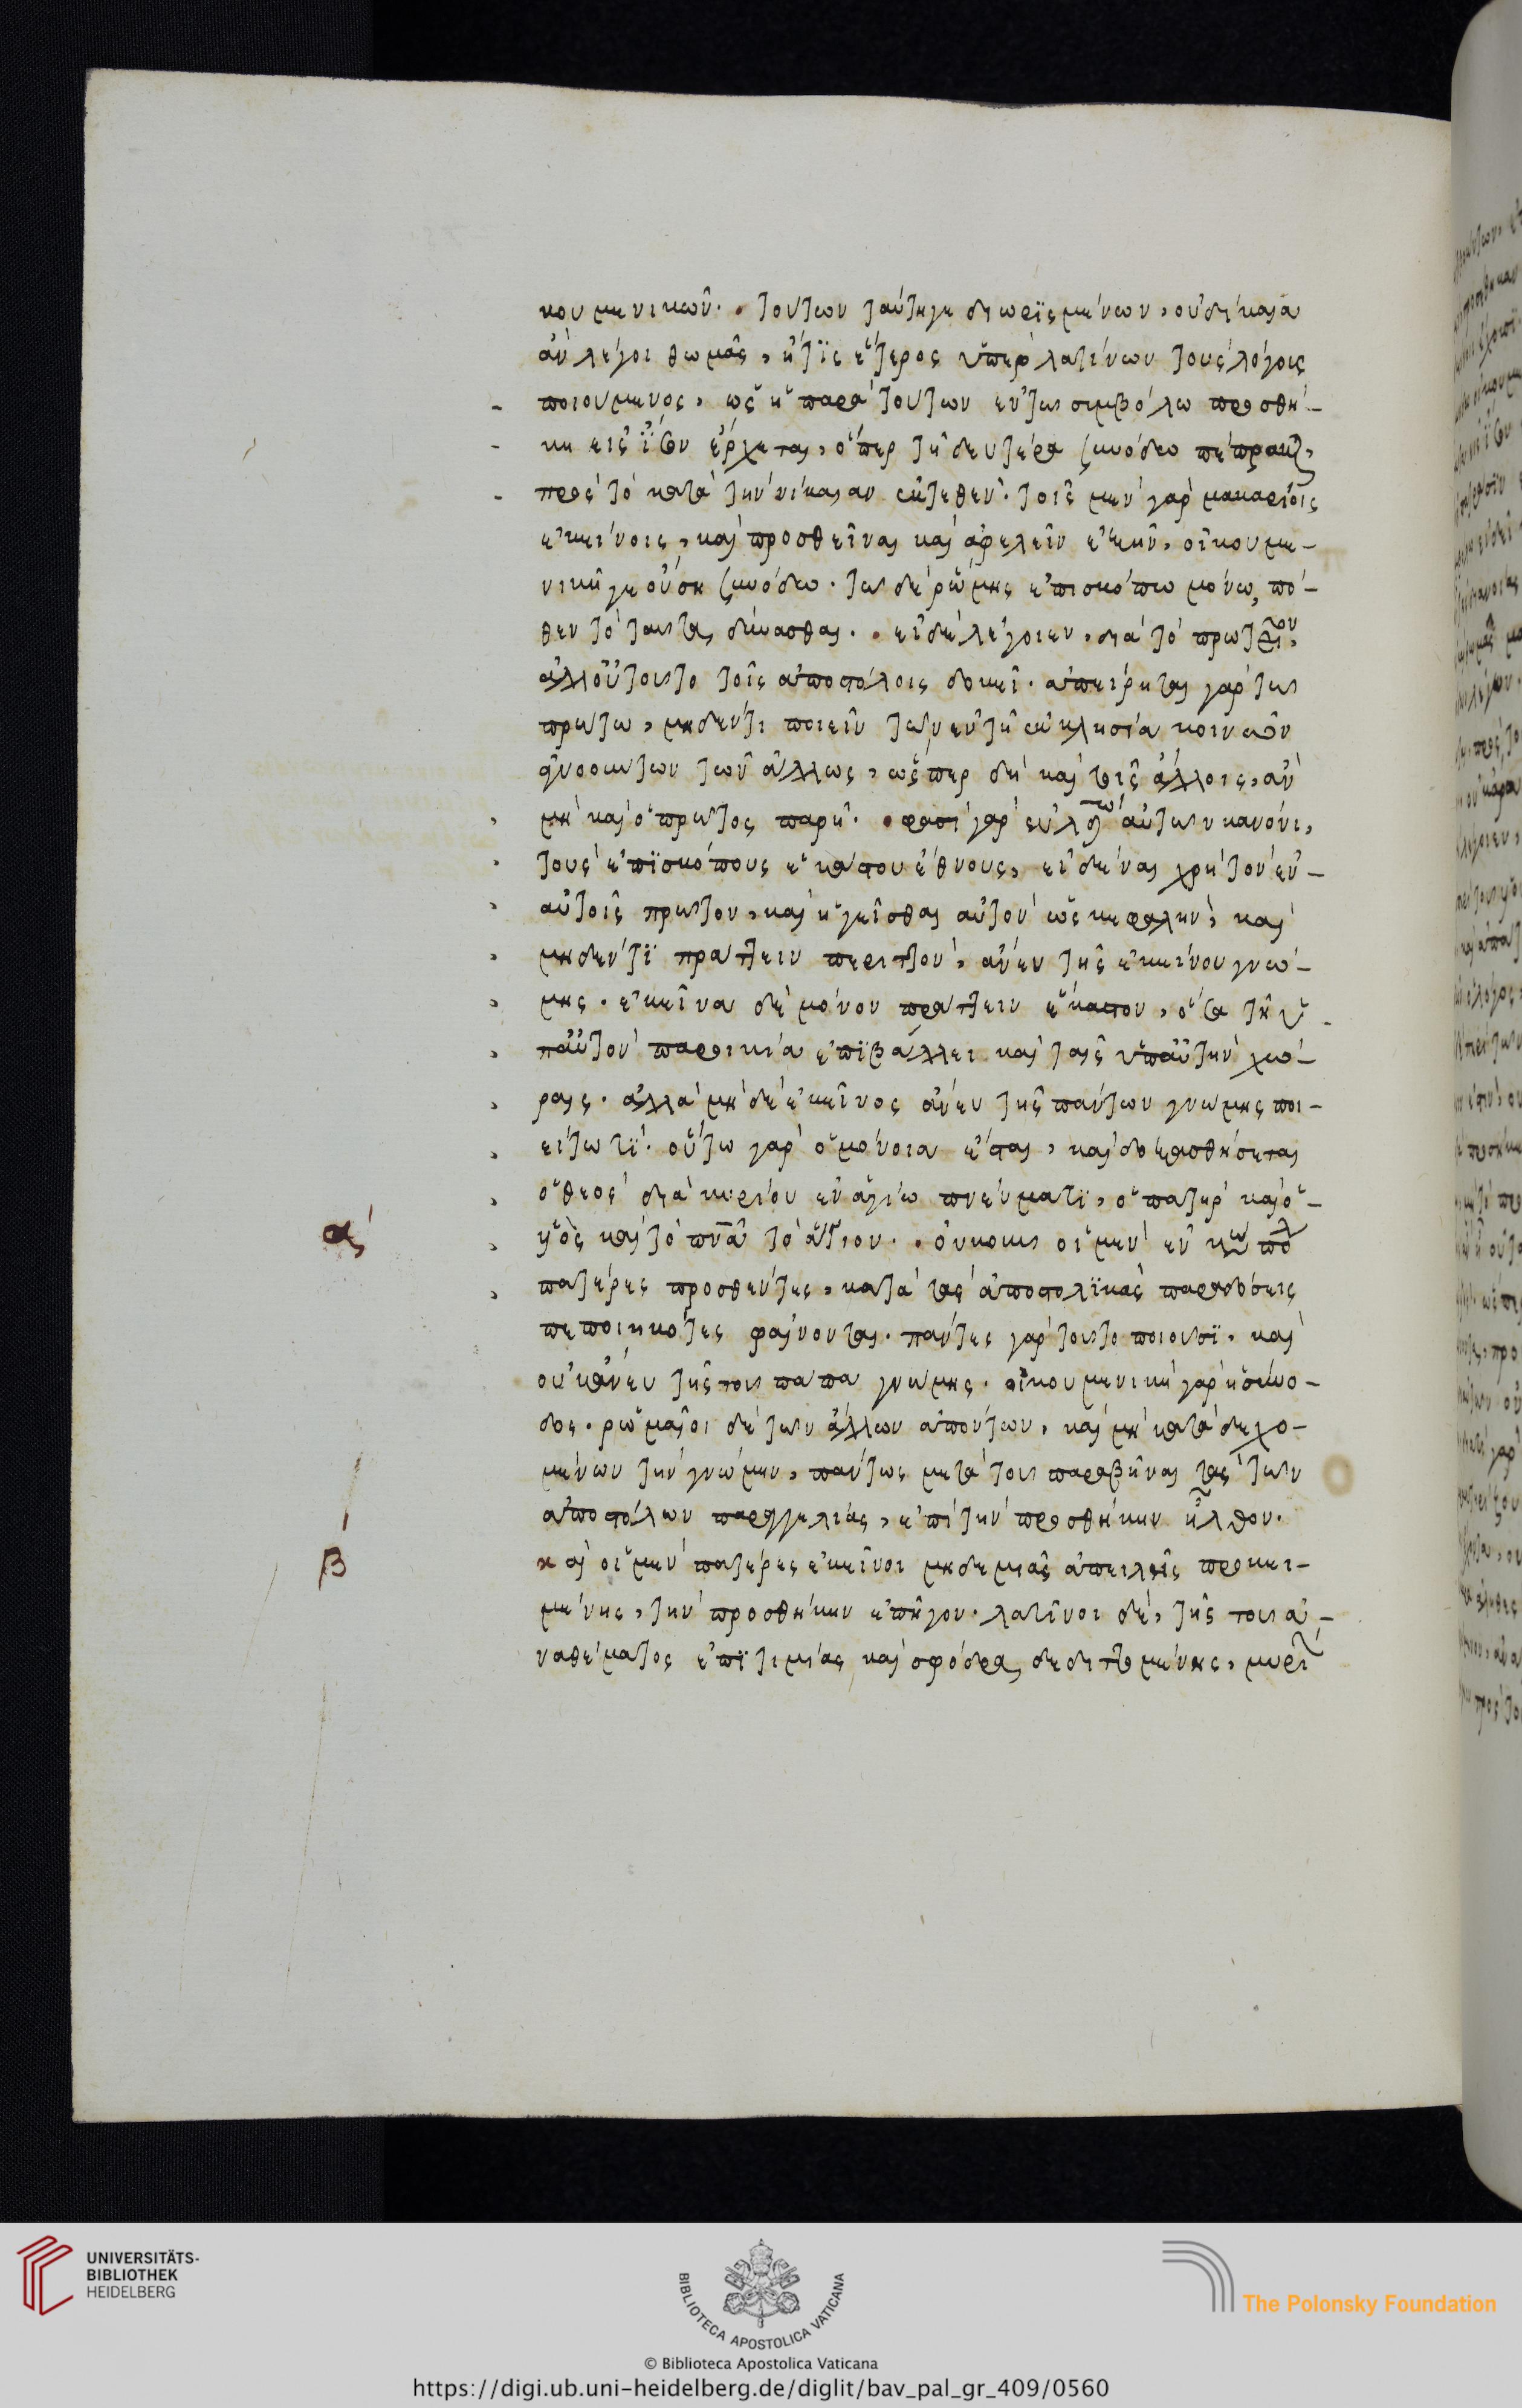 κουμενικῶν. τούτων ταύτηγε διωρϊσμένων, ουδίκαια
ἀν λέγοι θωμᾶς, ἤτϊς ἕτερος ὑπὲρ λατίνων τοὺς λόγοις
ποιούμενος, ὡς ἡ παρὰ τούτων ἐν τῶ συμβόλω προσθή-
κη εἰς ἴσον ἔρχεται, ὅπερ τῆ δευτέρα συνόδω πέπρακται,
πρὸς τὸ κατὰ τὴν νίκαιαν ἐκτεθέν. τοῖς μὲν γὰρ μακαρίοις
ἐκείνοις, καὶ προσθεῖναι καὶ ἀφελεῖν ἐξῆν, οἰκουμε-
νικῆ γε οὔση συνόδω. τῶ δὲ ῥώμης ἐπισκόπω μόνω, πό-
θεν τὸ ταῦτα δύνασθαι. εἰ δὲ λέγοιεν, διὰ τὸ πρωτεῖον,
ἀλλ οὐ τοῦτο τοῖς ἀποστόλοις δοκεῖ. ἀπείρηται γὰρ τῶ
πρώτω, μηδέν τι ποιεῖν τῶν ἐν τῆ ἐκκλησία κοινῶν
ἀγνοούντων τῶν ἄλλως, ὥσπερ δὴ καὶ τοῖς ἄλλοις, ἂν
μὴ καὶ ὁ πρῶτος παρῆ. φασὶ γὰρ ἐν λδω αὐτῶν κανόνι,
τοὺς ἐπϊσκόπους ἑκάστου ἔθνους, εἰδέναι χρὴ τὸν ἐν-
αὐτοῖς πρῶτον, καὶ ἡγεῖσθαι αὐτὸν ὡς κεφαλὴν, καὶ
μηδέν τϊ πράττειν περιττὸν, ἄνευ τῆς ἐκείνου γνώ-
μης. ἐκεῖνα δὲ μόνον πράττειν ἕκαστον, ὅσα τῆ ὑ-
παὐτὸν παροικία ἐπϊβάλλει καὶ ταῖς ὑπαὐτὴν χώ-
ραις. ἀλλὰ μὴ δὲ ἐκεῖνος ἄνευ τῆς πάντων γνώμης ποι-
είτω τϊ. οὕτω γὰρ ὁμόνοια ἔσται, καὶ δοξασθήσεται
ὁ θεὸς διὰ κυρίου ἐν ἁγίω πνεύματϊ, ὁ πατὴρ καὶ ὁ-
υἱὸς καὶ τὸ πνᾶ τὸ ἅγιον. οὐκοῦν οἱ μὲν ἐν κων πολ
πατέρες προσθέντες, κατὰ τὰς ἀποστολϊκὰς παραδόσεις
πεποιηκότες φαίνονται. πάντες γὰρ τοῦτο ποιοῦσϊ. καὶ
οὐκ ἄνευ τῆς τοῦ πάπα γνώμης. οἰκουμενικὴ γὰρ ἡ σύνο-
δος. ῥωμαῖοι δὲ τῶν ἄλλων ἀπόντων, καὶ μὴ καταδεχο-
μένων τὴν γνώμην, πάντως μετὰ τοῦ παραβῆναι τὰς τῶν
ἀποστόλων παραγγελίας, ἐπὶ τὴν προσθήκην ἦλθον.
καὶ οἱ μὲν πατέρες ἐκεῖνοι μηδεμιᾶς ἀπειλῆς προκει-
μένης, τὴν προσθήκην ἐπῆγον. λατῖνοι δὲ, τῆς τοῦ ἀ-
ναθέματος ἐπϊτιμίας καὶ σφόδρα δεδιτ μένης, μυρί
ας
β
UNIVERSITÄTS-
BIBLIOTHEK
HEIDELBERG
BIBLIOTECA APOSTOLICA VATICANA
The Polonsky Foundation
© Biblioteca Apostolica Vaticana
https://digi.ub.uni-heidelberg.de/diglit/bav_pal_gr_409/0560